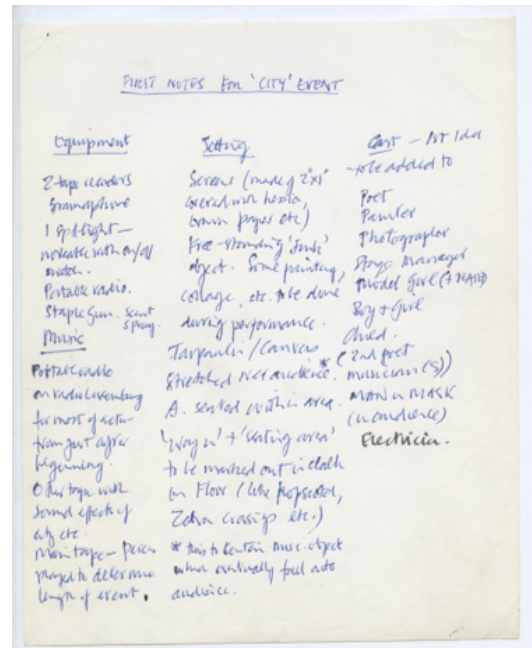 FIRST NOTES for 'CITY' EVENT
Equipment
2 tape recorders
Gramophone
1 Spotlight —
moveable with on/off
switch.
Portable radio.
Staple Gun. Scent
Spray.
Music
Portable radio
on radio Luxemburg
for most of action
from just after
beginning.
Other tape with
sound effects of
city etc.
Main tape — pieces
played to determine
length of event.
Setting
Screens (made of 2"x1"
covered with hessian,
brown paper etc)
Free-standing 'junk'
object. Some painting,
collage, etc. to be done
during performance.
Tarpaulin / Canvas
stretched over audience. *
A. seated within area.
'Way in' + 'seating area'
to be marked out in cloth
on Floor (like hopscotch,
Zebra crossings etc.)
* this to contain misc. object
which eventually fall onto
audience.
Cast — 1st Idea
- to be added to
Poet
Painter
Photographer
Stage Manager
Model Girl
Boy + Girl
(2nd poet
musician(s))
MAN in MASK
(in audience)
Electrician.